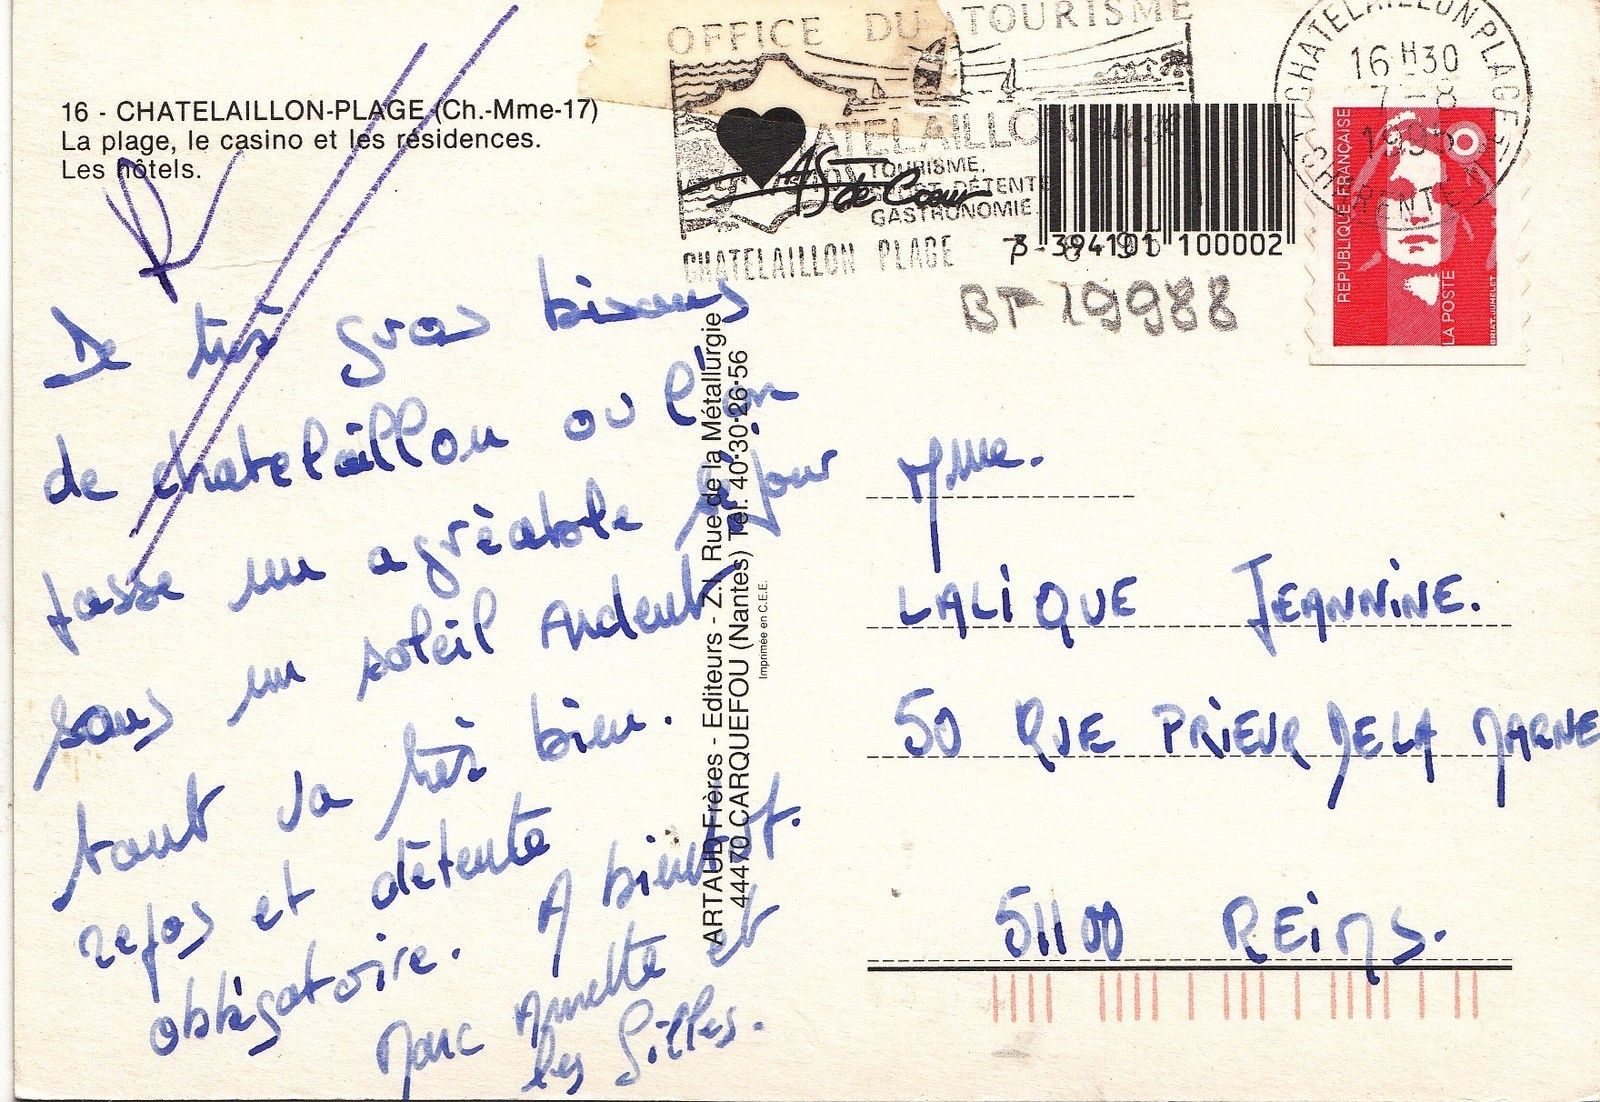 OFFICE DU TOURISME
16 - CHATELAILLON-PLAGE (Ch.-Mme-17)
La plage, le casino et les résidences.
Les hôtels.
TOURISME,
DÉTENTE
GASTRONOMIE.
As de Cœur
CHATELAILLON PLAGE
3 394101 100002
CHATELAILLON PLAGE
16 H 30
7 - 8
1995
REPUBLIQUE FRANÇAISE
LA POSTE
BRIAT-JUMELET
BT 19988
De très gros bisous
de chatelaillon ou l'on
passe un agréable séjour
sous un soleil Ardent
tout va très bien.
repos et détente
obligatoire. A bientot.
Marc Annette et
les Gilles.
ARTAUD Frères - Editeurs - Z.I. Rue de la Métallurgie
44470 CARQUEFOU (Nantes) Tél. 40-30-26-56
Imprimée en C.E.E.
Mme.
LALIQUE JEANNINE.
50 RUE PRIEUR DE LA MARNE
51100 REIMS.